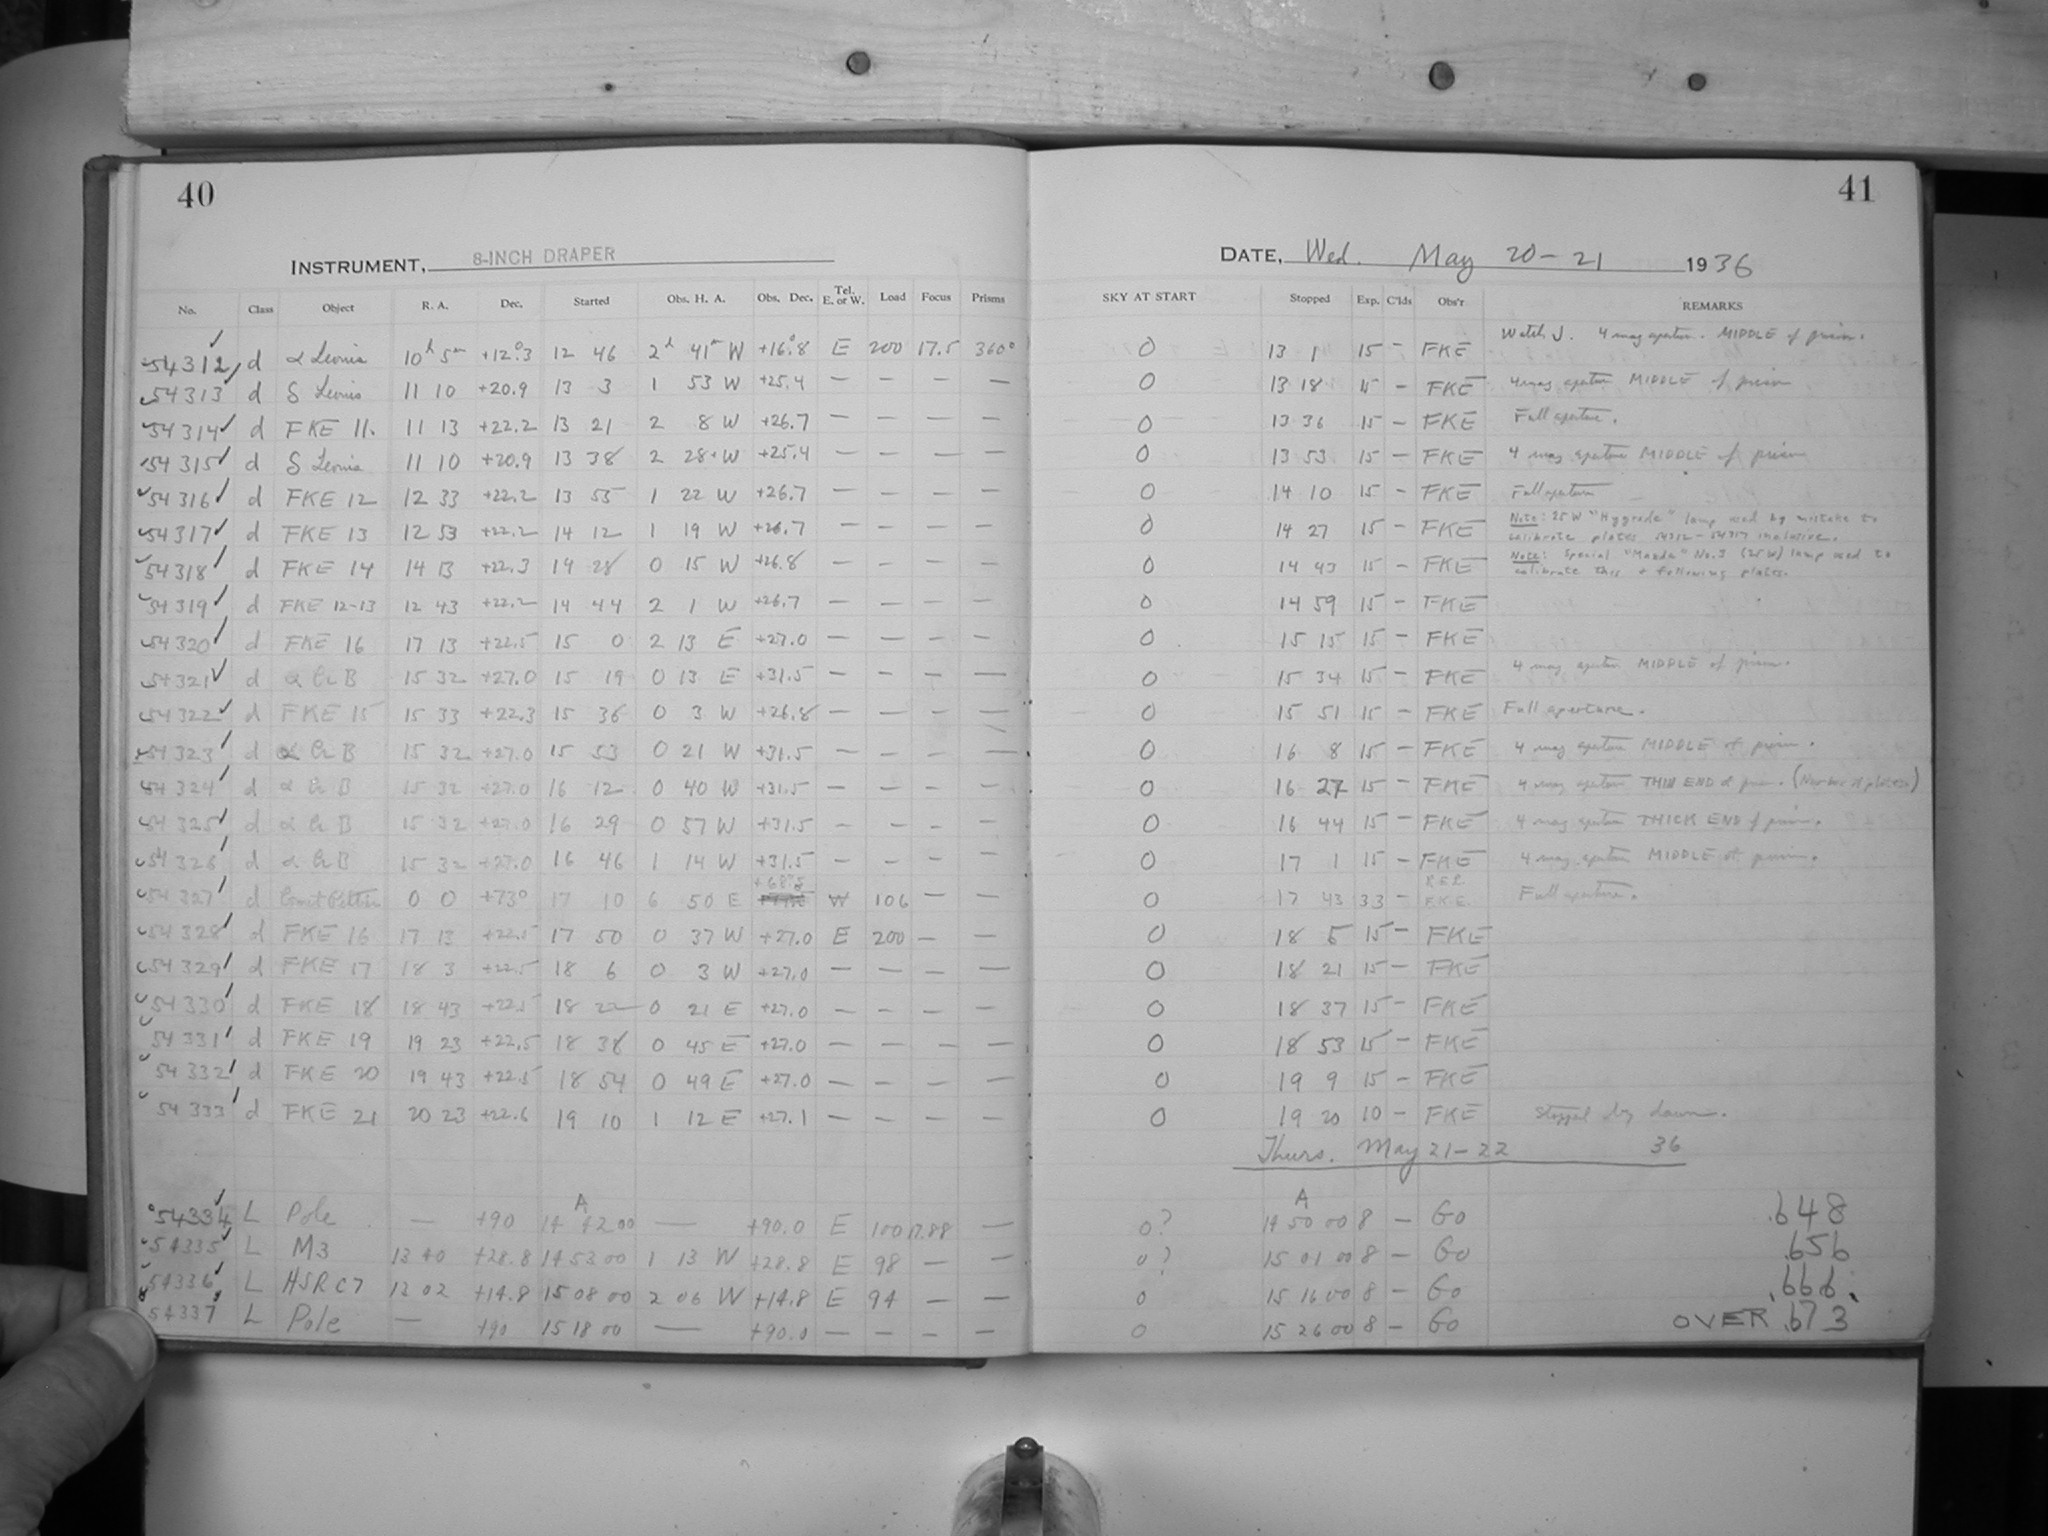 40
INSTRUMENT, 8-INCH DRAPER
No. Class Object R. A. Dec. Started Obs. H. A. Obs. Dec. Tel. E. or W. Load Focus Prisms
54312 d α Leonis 10h 5m +12°.3 12 46 2h 41m W +16°.8 E 200 17.5 360°
54313 d δ Leonis 11 10 +20.9 13 3 1 53 W +25.4 — — — —
54314 d FKE 11. 11 13 +22.2 13 21 2 8 W +26.7 — — — —
54315 d δ Leonis 11 10 +20.9 13 38 2 28 W +25.4 — — — —
54316 d FKE 12 12 33 +22.2 13 55 1 22 W +26.7 — — — —
54317 d FKE 13 12 53 +22.2 14 12 1 19 W +26.7 — — — —
54318 d FKE 14 14 13 +22.3 14 28 0 15 W +26.8 — — — —
54319 d FKE 12-13 12 43 +22.2 14 44 2 1 W +26.7 — — — —
54320 d FKE 16 17 13 +22.5 15 0 2 13 E +27.0 — — — —
54321 d α Cr B 15 32 +27.0 15 19 0 13 E +31.5 — — — —
54322 d FKE 15 15 33 +22.3 15 36 0 3 W +26.8 — — — —
54323 d α Cr B 15 32 +27.0 15 53 0 21 W +31.5 — — — —
54324 d α Cr B 15 32 +27.0 16 12 0 40 W +31.5 — — — —
54325 d α Cr B 15 32 +27.0 16 29 0 57 W +31.5 — — — —
54326 d α Cr B 15 32 +27.0 16 46 1 14 W +31.5 — — — —
54327 d Comet Peltier 0 0 +73° 17 10 6 50 E +68°.5 W 106 — —
54328 d FKE 16 17 13 +22.5 17 50 0 37 W +27.0 E 200 — —
54329 d FKE 17 18 3 +22.5 18 6 0 3 W +27.0 — — — —
54330 d FKE 18 18 43 +22.5 18 22 0 21 E +27.0 — — — —
54331 d FKE 19 19 23 +22.5 18 38 0 45 E +27.0 — — — —
54332 d FKE 20 19 43 +22.5 18 54 0 49 E +27.0 — — — —
54333 d FKE 21 20 23 +22.6 19 10 1 12 E +27.1 — — — —
A
54334 L Pole — +90 14 42 00 — +90.0 E 100 17.88 —
54335 L M3 13 40 +28.8 14 53 00 1 13 W +28.8 E 98 — —
54336 L HSRC7 13 02 +14.8 15 08 00 2 06 W +14.8 E 94 — —
54337 L Pole — +90 15 18 00 — +90.0 — — — —
41
DATE, Wed. May 20-21 1936
SKY AT START Stopped Exp. C'lds Obs'r REMARKS
0 13 1 15 — FKE Watch J. 4 mag aperture. MIDDLE of prism.
0 13 18 15 — FKE 4 mag aperture MIDDLE of prism
0 13 36 15 — FKE Full aperture.
0 13 53 15 — FKE 4 mag aperture MIDDLE of prism
0 14 10 15 — FKE Full aperture
0 14 27 15 — FKE Note: 25 W "Hygrade" lamp used by mistake to
calibrate plates 54312-54317 inclusive.
0 14 43 15 — FKE Note: Special "Mazda" No. 3 (25 W) lamp used to
calibrate this + following plates.
0 14 59 15 — FKE
0 15 15 15 — FKE
0 15 34 15 — FKE 4 mag aperture MIDDLE of prism.
0 15 51 15 — FKE Full aperture.
0 16 8 15 — FKE 4 mag aperture MIDDLE of prism.
0 16 27 15 — FKE 4 mag aperture THIN END of prism.
0 16 44 15 — FKE 4 mag aperture THICK END of prism.
0 17 1 15 — FKE 4 mag aperture MIDDLE of prism.
0 17 43 33 — FKE Full aperture.
0 18 5 15 — FKE
0 18 21 15 — FKE
0 18 37 15 — FKE
0 18 53 15 — FKE
0 19 9 15 — FKE
0 19 20 10 — FKE Stopped by dawn.
Thurs. May 21-22 36
A
0? 14 50 00 8 — Go .648
0? 15 01 00 8 — Go .656
0 15 16 00 8 — Go .666.
0 15 26 00 8 — Go OVER .673